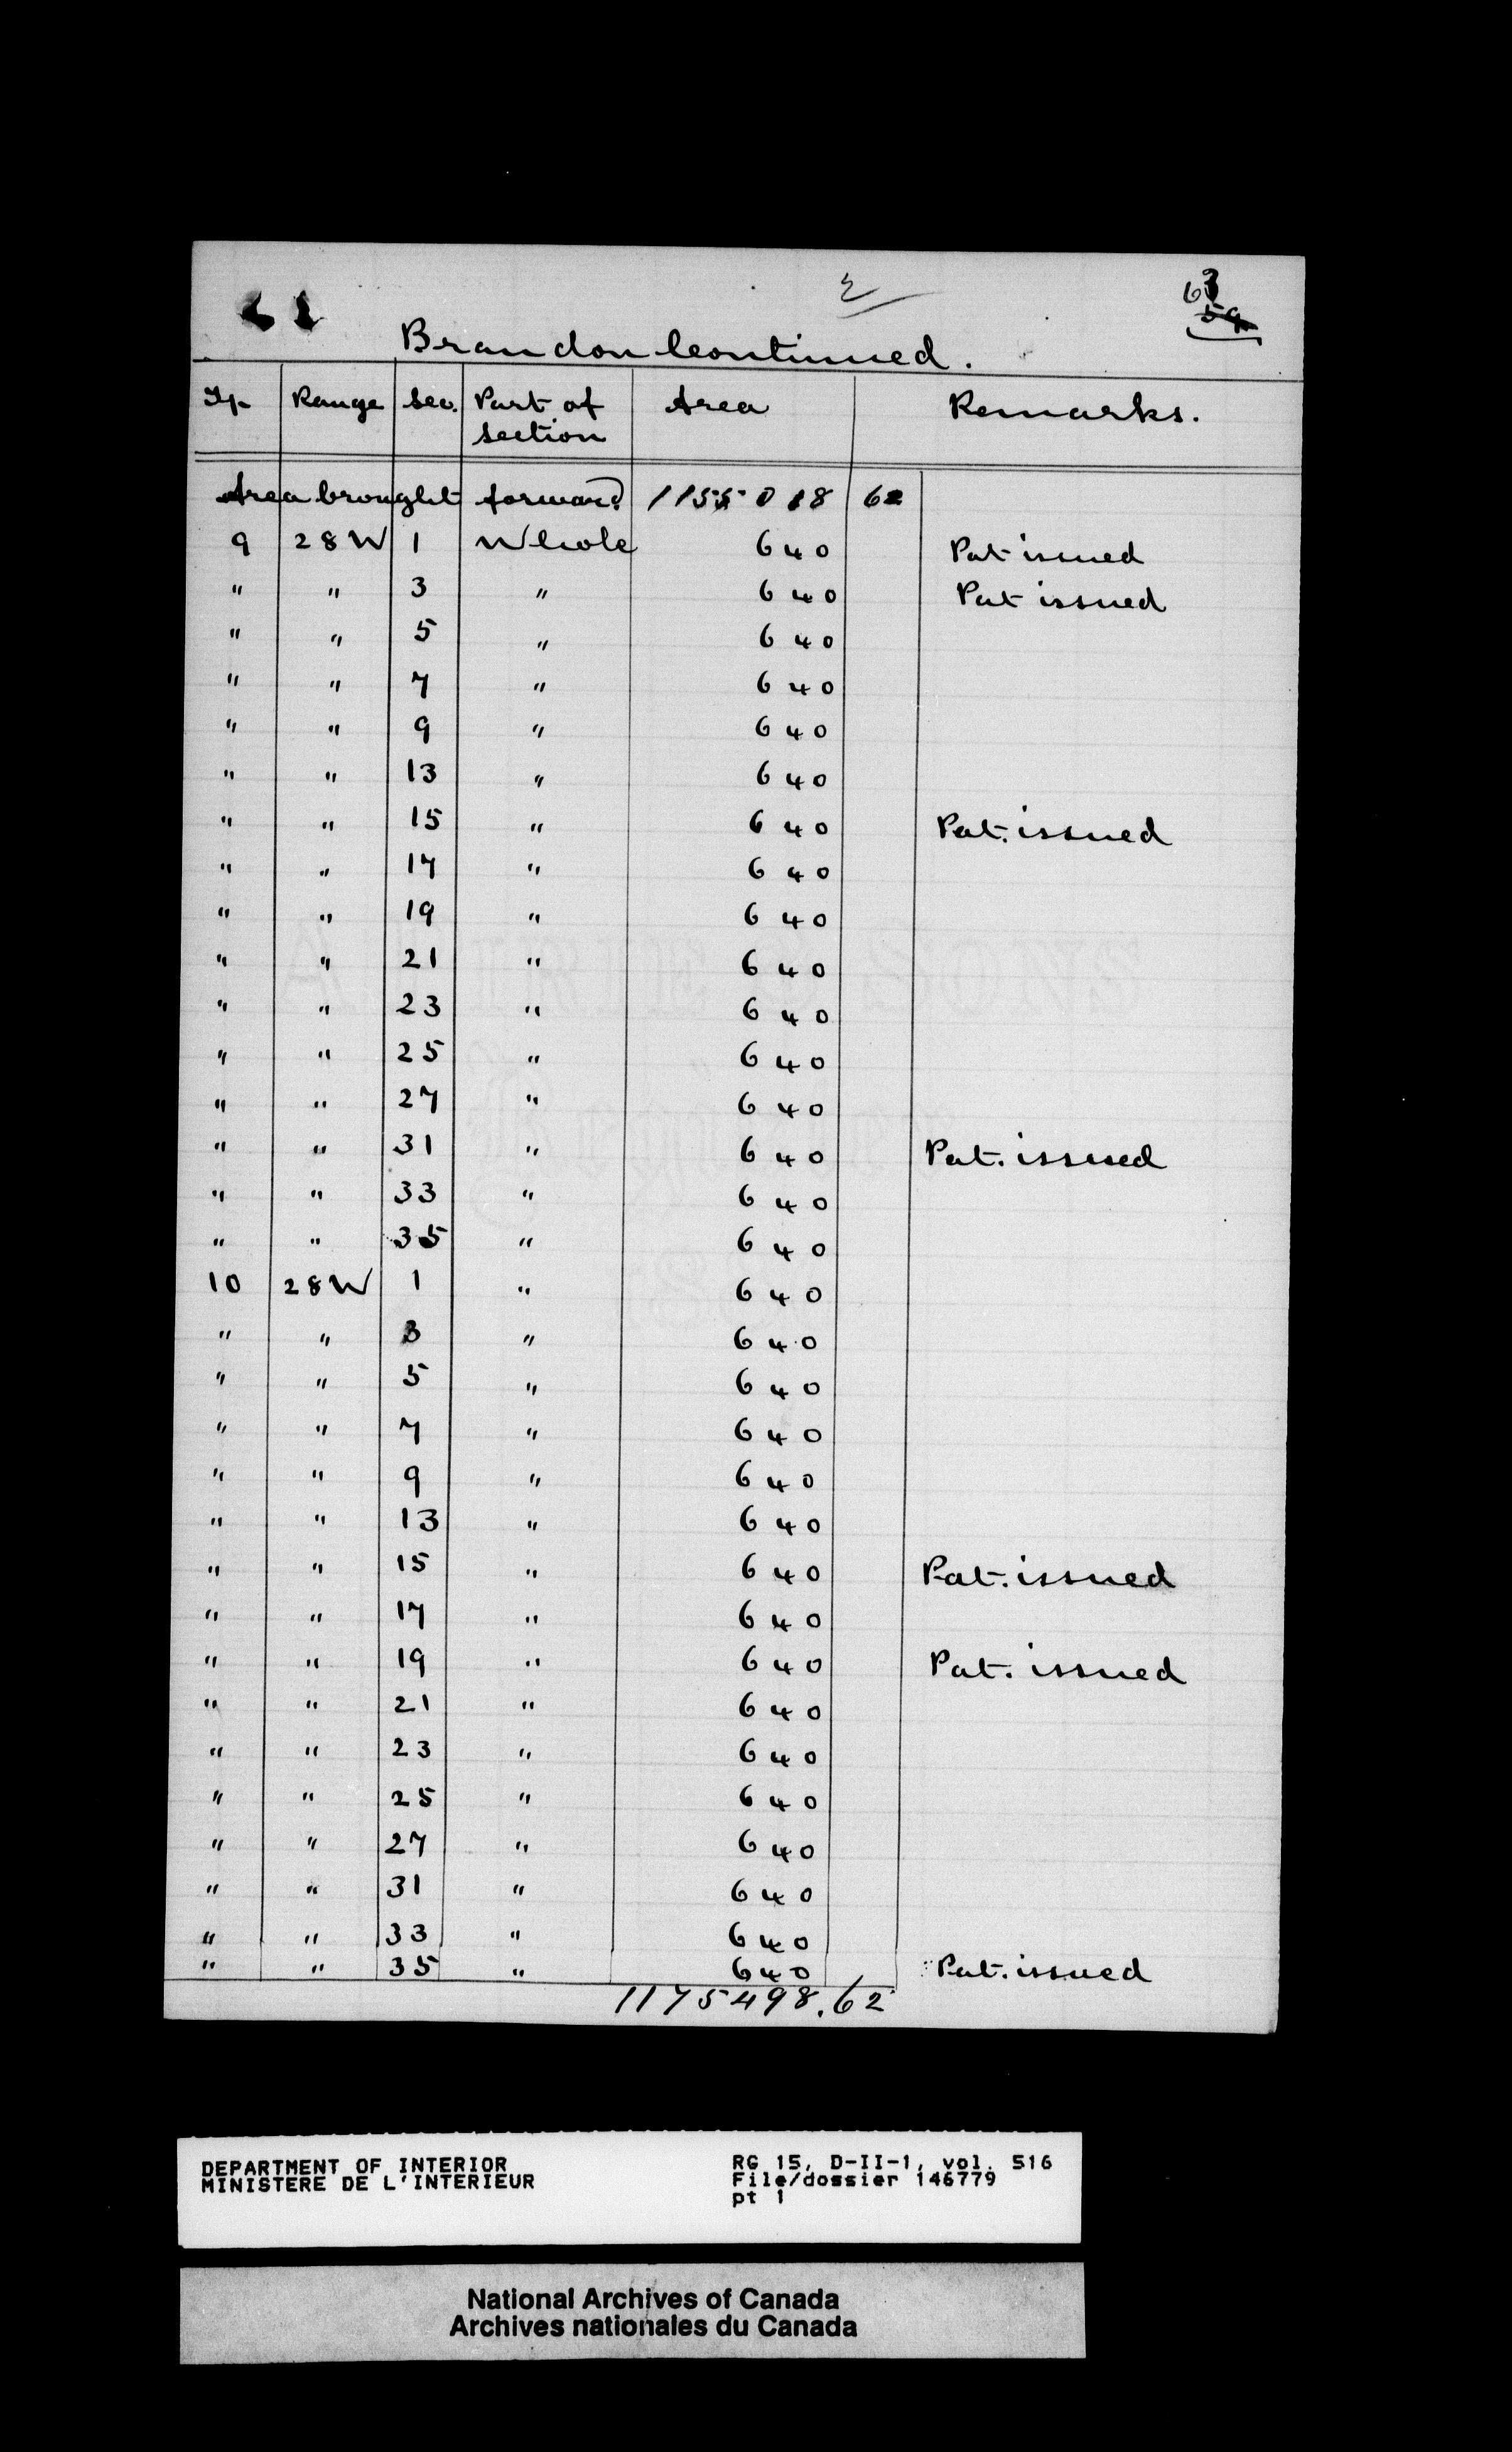 61
63
59
Brandon Continued.
Tp Range Sec. Part of section Area Remarks.
Area brought forward 1155018 62
9 28W 1 Whole 640 Pat issued
" " 3 " 640 Pat issued
" " 5 " 640
" " 7 " 640
" " 9 " 640
" " 13 " 640
" " 15 " 640 Pat. issued
" " 17 " 640
" " 19 " 640
" " 21 " 640
" " 23 " 640
" " 25 " 640
" " 27 " 640
" " 31 " 640 Pat. issued
" " 33 " 640
" " 35 " 640
10 28W 1 " 640
" " 3 " 640
" " 5 " 640
" " 7 " 640
" " 9 " 640
" " 13 " 640
" " 15 " 640 Pat. issued
" " 17 " 640
" " 19 " 640 Pat. issued
" " 21 " 640
" " 23 " 640
" " 25 " 640
" " 27 " 640
" " 31 " 640
" " 33 " 640
" " 35 " 640 Pat. issued
1175498.62
DEPARTMENT OF INTERIOR
MINISTERE DE L'INTERIEUR
RG 15, D-II-1, vol. 516
File/dossier 146779
pt 1
National Archives of Canada
Archives nationales du Canada